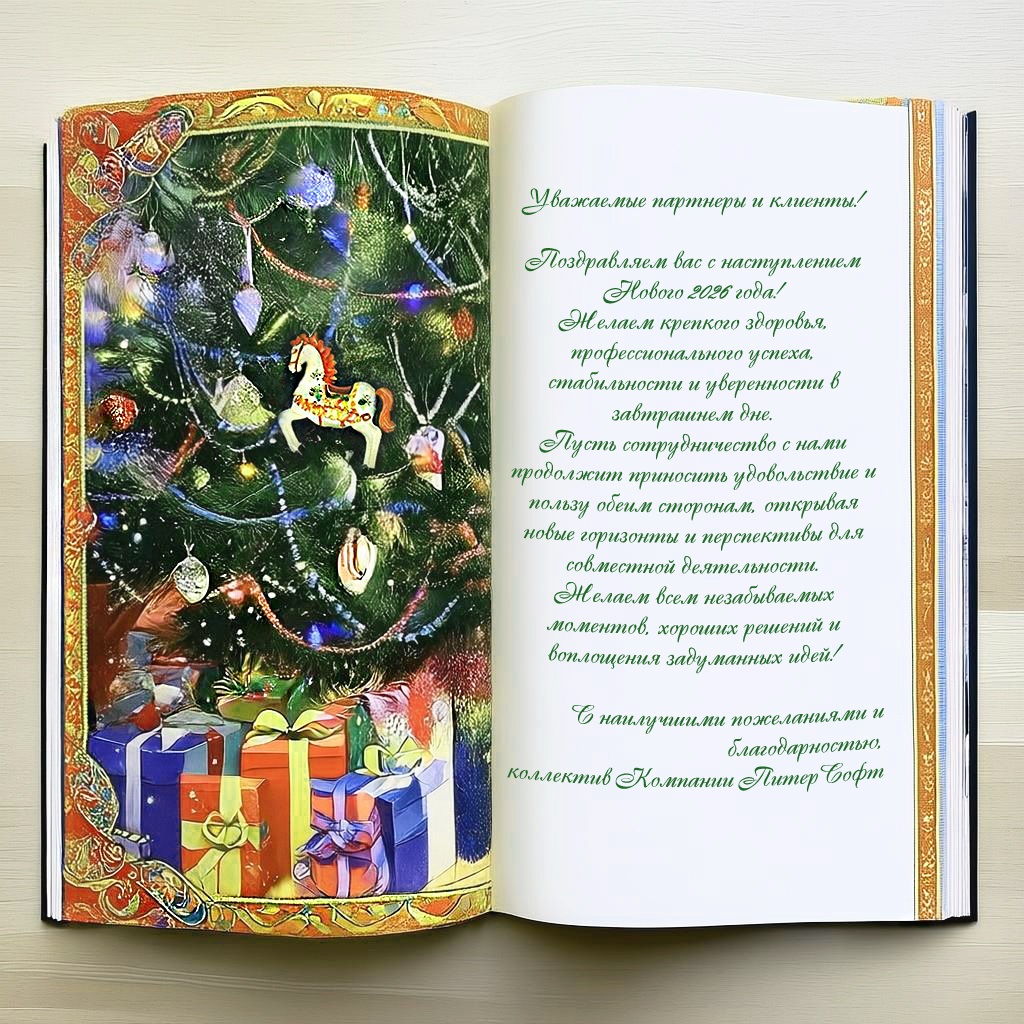 Уважаемые партнеры и клиенты!
Поздравляем вас с наступлением
Нового 2026 года!
Желаем крепкого здоровья,
профессионального успеха,
стабильности и уверенности в
завтрашнем дне.
Пусть сотрудничество с нами
продолжит приносить удовольствие и
пользу обеим сторонам, открывая
новые горизонты и перспективы для
совместной деятельности.
Желаем всем незабываемых
моментов, хороших решений и
воплощения задуманных идей!
С наилучшими пожеланиями и
благодарностью,
коллектив Компании ПитерСофт